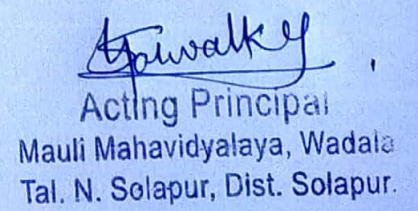 Acting Principal
Mauli Mahavidyalaya, Wadala
Tal. N. Solapur, Dist. Solapur.